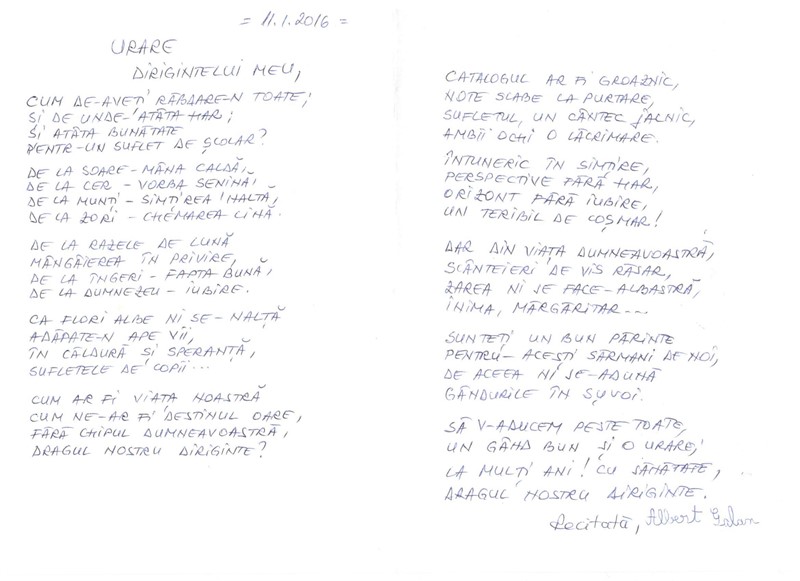 = 11.1.2016 =
URARE
DIRIGINTELUI MEU,
CUM DE-AVEȚI RĂBDARE-N TOATE;
ȘI DE UNDE-ATÂTA HAR;
ȘI ATÂTA BUNĂTATE
PENTR-UN SUFLET DE ȘCOLAR?
DE LA SOARE-MÂNA CALDĂ,
DE LA CER - VORBA SENINĂ,
DE LA MUNȚI - SIMȚIREA 'NALTĂ,
DE LA ZORI - CHEMAREA LINĂ.
DE LA RAZELE DE LUNĂ
MÂNGÂIEREA ÎN PRIVIRE,
DE LA ÎNGERI - FAPTA BUNĂ,
DE LA DUMNEZEU - IUBIRE.
CA FLORI ALBE NI SE-NALȚĂ
ADĂPATE-N APE VII,
ÎN CĂLDURĂ ȘI SPERANȚĂ,
SUFLETELE DE COPII...
CUM AR FI VIAȚA NOASTRĂ
CUM NE-AR FI DESTINUL OARE,
FĂRĂ CHIPUL DUMNEAVOASTRĂ,
DRAGUL NOSTRU DIRIGINTE?
CATALOGUL AR FI GROAZNIC,
NOTE SLABE LA PURTARE,
SUFLETUL, UN CÂNTEC JALNIC,
AMBII OCHI O LĂCRIMARE.
ÎNTUNERIC ÎN SIMȚIRE,
PERSPECTIVE FĂRĂ HAR,
ORIZONT FĂRĂ IUBIRE,
UN TERIBIL DE COȘMAR!
DAR DIN VIAȚA DUMNEAVOASTRĂ,
SCÂNTEIERI DE VIS RĂSAR,
ZAREA NI SE FACE-ALBASTRĂ,
INIMA, MĂRGĂRITAR...
SUNTEȚI UN BUN PĂRINTE
PENTRU-ACEȘTI SĂRMANI DE NOI,
DE ACEEA NI SE-ADUNĂ
GÂNDURILE ÎN ȘUVOI.
SĂ V-ADUCEM PESTE TOATE,
UN GÂND BUN ȘI O URARE;
LA MULȚI ANI! CU SĂNĂTATE,
DRAGUL NOSTRU DIRIGINTE.
Recitată, Albert Golan